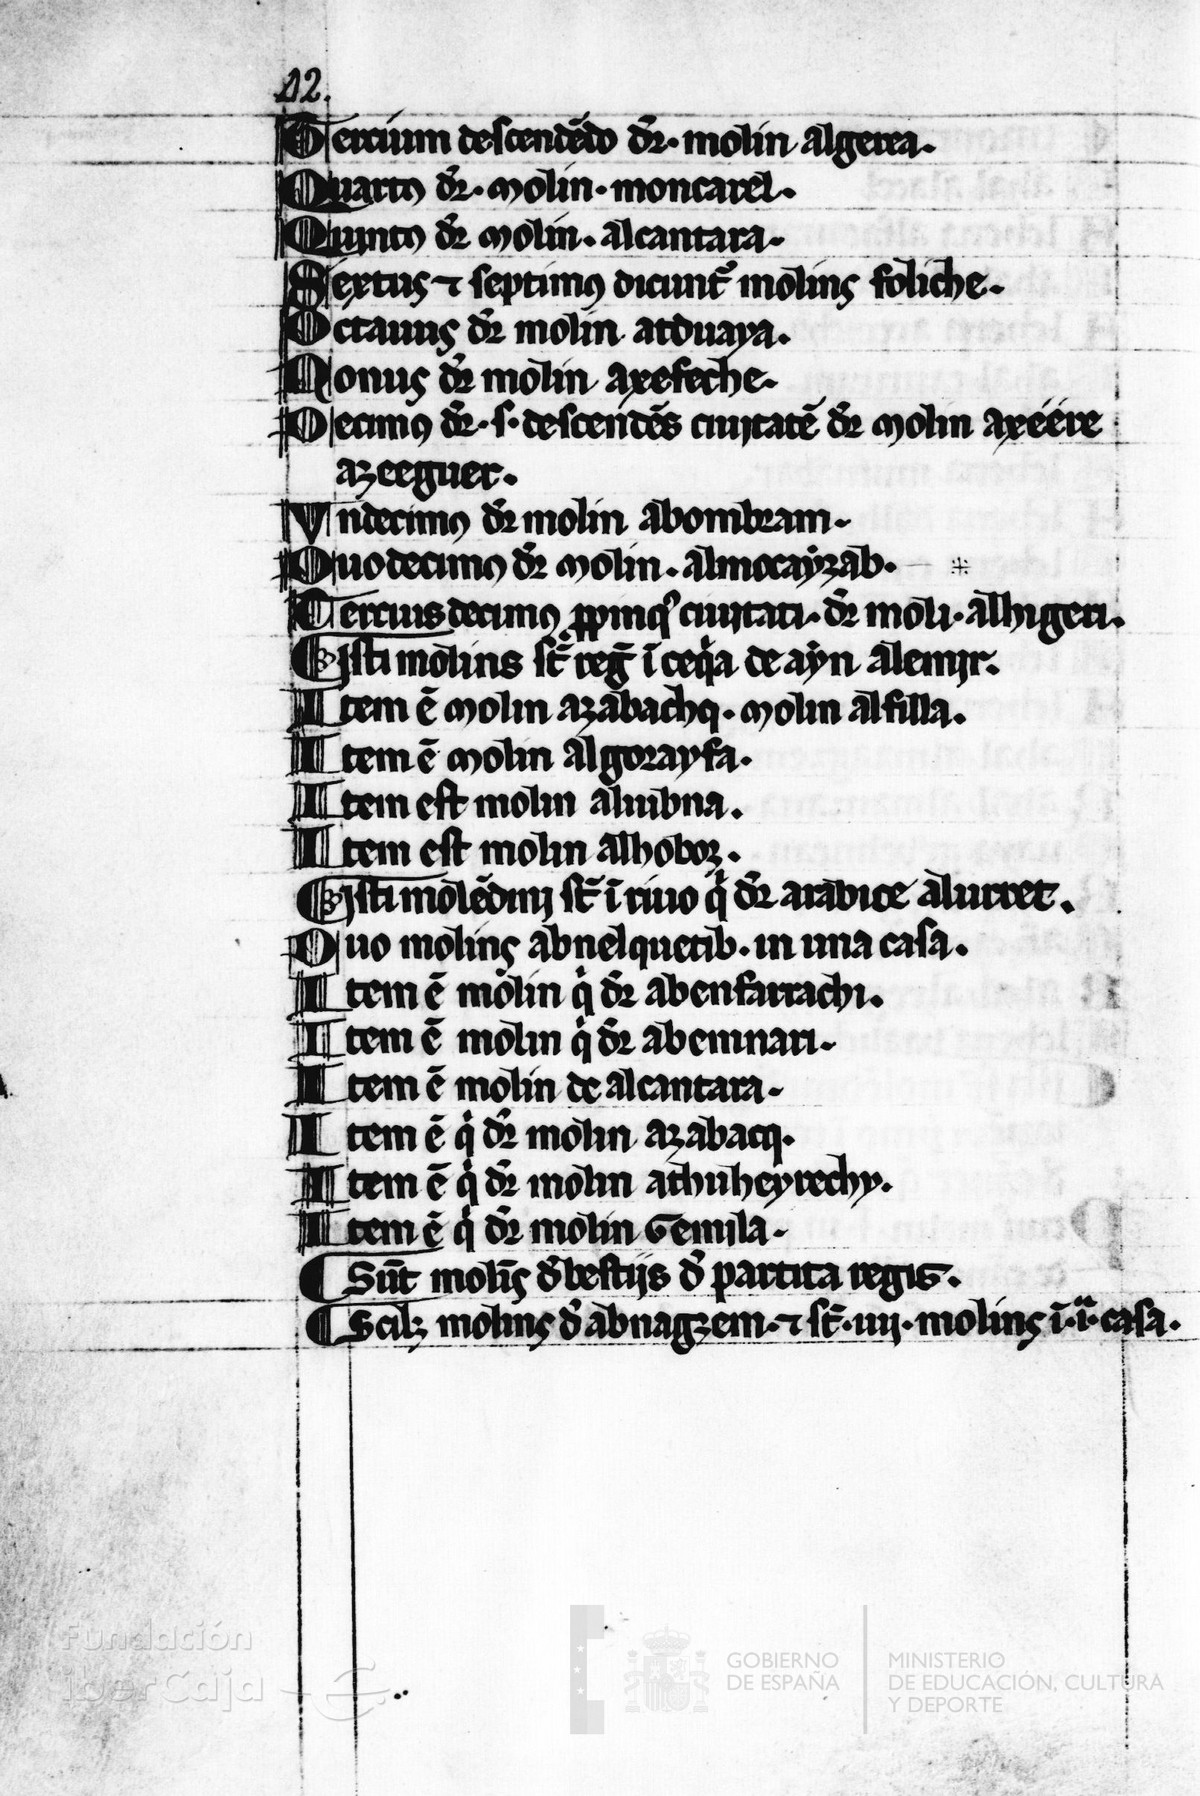 12.
Tercium descendẽdo dr̃· molin algerea.
Quartꝰ dr̃· molin· moncarel.
Quintꝰ dr̃ molin· alcantara·
Sextus ⁊ septimꝰ dicunt᷑ molins foliche.
Octauus dr̃ molin atduaya.
Nonus dr̃ molin axefeche·
Decimꝰ dr̃· s· descendẽs ciuitatẽ dr̃ molin axeére
azeeguer.
Vndecimꝰ dr̃ molin abombram·
Duodecimꝰ dr̃ molin· almocayzab·
Terciusdecimꝰ ꝓpinqͦ ciuitati· dr̃ moli· alhigeri.
¶ Isti molins st̃ reg̃ ĩ ceq̃a de ayn alemir.
Item ẽ molin azabachq· molin alfilla.
Item ẽ molin algorayfa.
Item est molin aluibna.
Item est molin alhoboz.
¶ Isti molẽdinj st̃ ĩ riuo q̇ dr̃ arabice alurret.
Duo molins abnelquetib· in una casa.
Item ẽ molin q̇ dr̃ abenfarrachi.
Item ẽ molin q̇ dr̃ abeninari·
Item ẽ molin de alcantara·
Item ẽ q̇ dr̃ molin azabacq.
Item ẽ q̇ dr̃ molin athuheyrechy.
Item ẽ q̇ dr̃ molin Gemila·
¶ Sũt molĩs d̃ bestijs d̃ partita regis.
¶ Scilꝫ molins d̃ abnagzem· ⁊ st̃· iiij· molins ĩ· ĩ· casa.
Fundación
iberCaja
GOBIERNO
DE ESPAÑA
MINISTERIO
DE EDUCACIÓN, CULTURA
Y DEPORTE